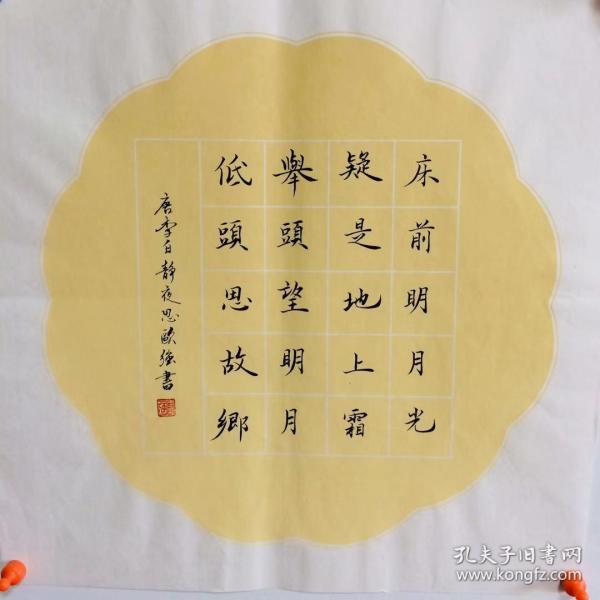 床前明月光
疑是地上霜
舉頭望明月
低頭思故鄉
唐李白静夜思歐強書
孔夫子旧書网
www.kongfz.com